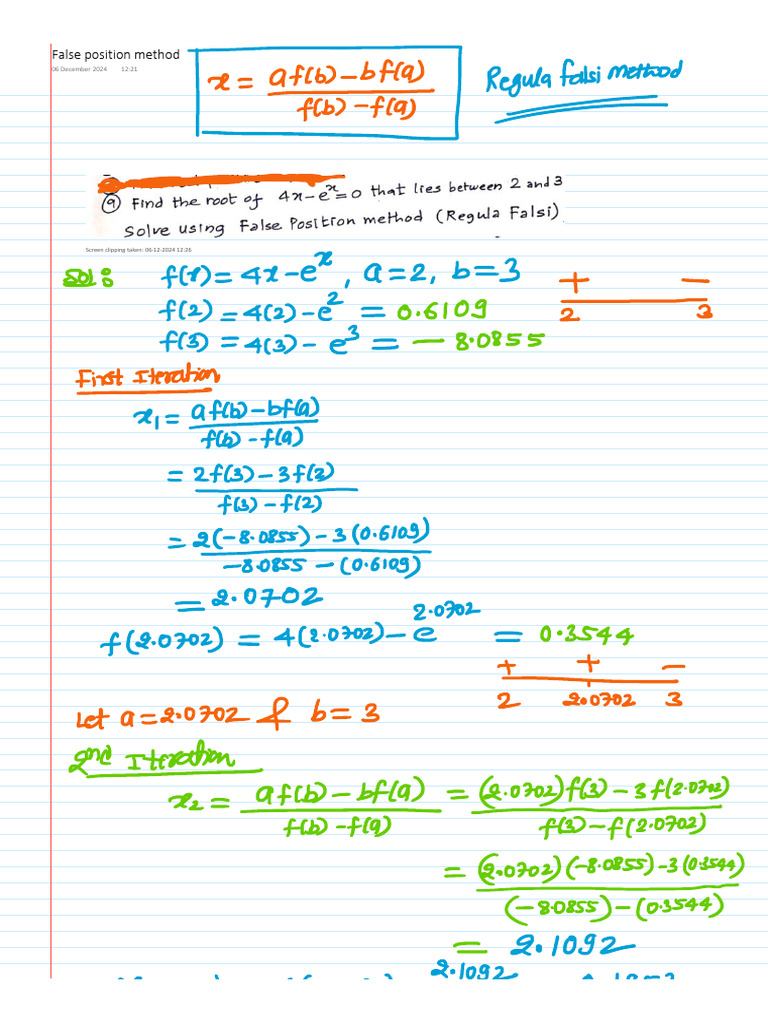 False position method
06 December 2024 12:21
x = af(b) - bf(a) / f(b) - f(a)
Regula falsi method
⑨ Find the root of 4x - e^x = 0 that lies between 2 and 3
Solve using False Position method (Regula Falsi)
Screen clipping taken: 06-12-2024 12:26
Sol:
f(x) = 4x - e^x, a = 2, b = 3
f(2) = 4(2) - e^2 = 0.6109
f(3) = 4(3) - e^3 = -8.0855
+ -
2 3
First Iteration
x₁ = af(b) - bf(a) / f(b) - f(a)
= 2f(3) - 3f(2) / f(3) - f(2)
= 2(-8.0855) - 3(0.6109) / -8.0855 - (0.6109)
= 2.0702
f(2.0702) = 4(2.0702) - e^2.0702 = 0.3544
+ + -
2 2.0702 3
Let a = 2.0702 & b = 3
2nd Iteration
x₂ = af(b) - bf(a) / f(b) - f(a) = (2.0702)f(3) - 3f(2.0702) / f(3) - f(2.0702)
= (2.0702)(-8.0855) - 3(0.3544) / (-8.0855) - (0.3544)
= 2.1092
2.1092